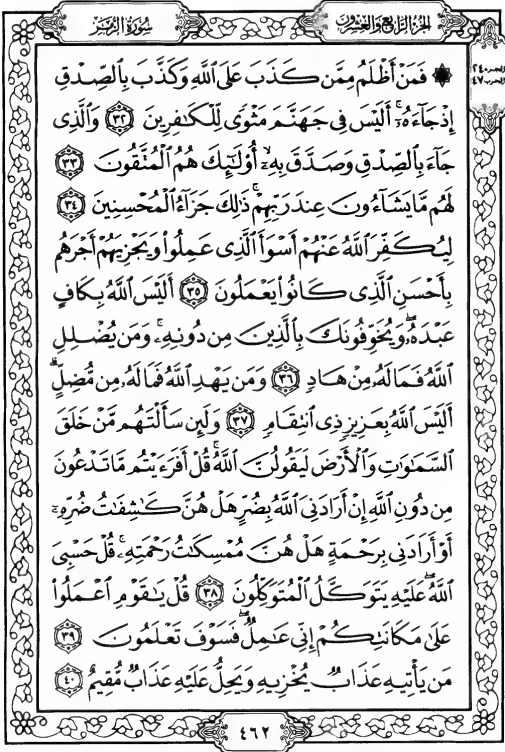 سُورَةُ الزُّمَرِ
الجُزْءُ الرَّابِعُ وَالعِشْرُونَ
۞ فَمَنْ أَظْلَمُ مِمَّن كَذَبَ عَلَى ٱللَّهِ وَكَذَّبَ بِٱلصِّدْقِ
إِذْ جَآءَهُۥٓ ۚ أَلَيْسَ فِى جَهَنَّمَ مَثْوًى لِّلْكَٰفِرِينَ ٣٢ وَٱلَّذِى
جَآءَ بِٱلصِّدْقِ وَصَدَّقَ بِهِۦٓ ۙ أُو۟لَٰٓئِكَ هُمُ ٱلْمُتَّقُونَ ٣٣
لَهُم مَّا يَشَآءُونَ عِندَ رَبِّهِمْ ۚ ذَٰلِكَ جَزَآءُ ٱلْمُحْسِنِينَ ٣٤
لِيُكَفِّرَ ٱللَّهُ عَنْهُمْ أَسْوَأَ ٱلَّذِى عَمِلُوا۟ وَيَجْزِيَهُمْ أَجْرَهُم
بِأَحْسَنِ ٱلَّذِى كَانُوا۟ يَعْمَلُونَ ٣٥ أَلَيْسَ ٱللَّهُ بِكَافٍ
عَبْدَهُۥ ۖ وَيُخَوِّفُونَكَ بِٱلَّذِينَ مِن دُونِهِۦ ۚ وَمَن يُضْلِلِ
ٱللَّهُ فَمَا لَهُۥ مِنْ هَادٍ ٣٦ وَمَن يَهْدِ ٱللَّهُ فَمَا لَهُۥ مِن مُّضِلٍّ ۗ
أَلَيْسَ ٱللَّهُ بِعَزِيزٍ ذِى ٱنتِقَامٍ ٣٧ وَلَئِن سَأَلْتَهُم مَّنْ خَلَقَ
ٱلسَّمَٰوَٰتِ وَٱلْأَرْضَ لَيَقُولُنَّ ٱللَّهُ ۚ قُلْ أَفَرَءَيْتُم مَّا تَدْعُونَ
مِن دُونِ ٱللَّهِ إِنْ أَرَادَنِىَ ٱللَّهُ بِضُرٍّ هَلْ هُنَّ كَٰشِفَٰتُ ضُرِّهِۦٓ
أَوْ أَرَادَنِى بِرَحْمَةٍ هَلْ هُنَّ مُمْسِكَٰتُ رَحْمَتِهِۦ ۚ قُلْ حَسْبِىَ
ٱللَّهُ ۖ عَلَيْهِ يَتَوَكَّلُ ٱلْمُتَوَكِّلُونَ ٣٨ قُلْ يَٰقَوْمِ ٱعْمَلُوا۟
عَلَىٰ مَكَانَتِكُمْ إِنِّى عَٰمِلٌ ۖ فَسَوْفَ تَعْلَمُونَ ٣٩
مَن يَأْتِيهِ عَذَابٌ يُخْزِيهِ وَيَحِلُّ عَلَيْهِ عَذَابٌ مُّقِيمٌ ٤٠
٤٦٢